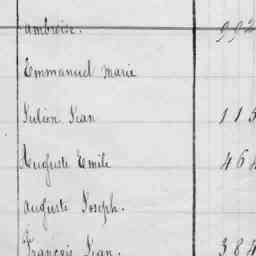 Ambroise. 992
Emmanuel Marie
Julien Jean 115
Auguste Emile 464
Auguste Joseph.
François Jean. 384